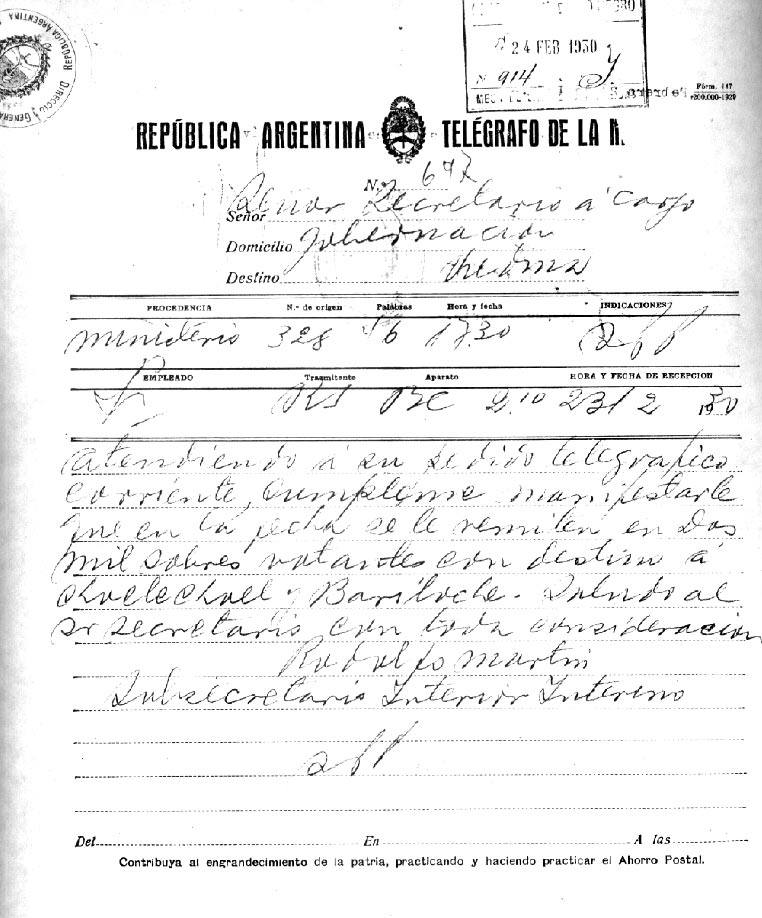 REPÚBLICA ARGENTINA
DIRECCIÓN GENERAL
24 FEB 1930
Nº 914
Fórm. 147
REPÚBLICA ARGENTINA TELÉGRAFO DE LA N.
No. 647
Señor Señor Secretario á cargo
Domicilio Gobernacion
Destino Viedma
PROCEDENCIA N.º de origen Palabras Hora y fecha INDICACIONES
Ministerio 328 46 1730
EMPLEADO Trasmitente Aparato HORA Y FECHA DE RECEPCION
BC 2.10 23/2 1930
Atendiendo á su pedido telegrafico
corriente, cumpleme manifestarle
que en la fecha se le remiten en Dos
mil sobres votantes con destino á
Choelechoel y Bariloche. Saludo al
sr secretario con toda consideracion
Rodolfo Martin
Subsecretario Interior Interino
Del En A las
Contribuya al engrandecimiento de la patria, practicando y haciendo practicar el Ahorro Postal.